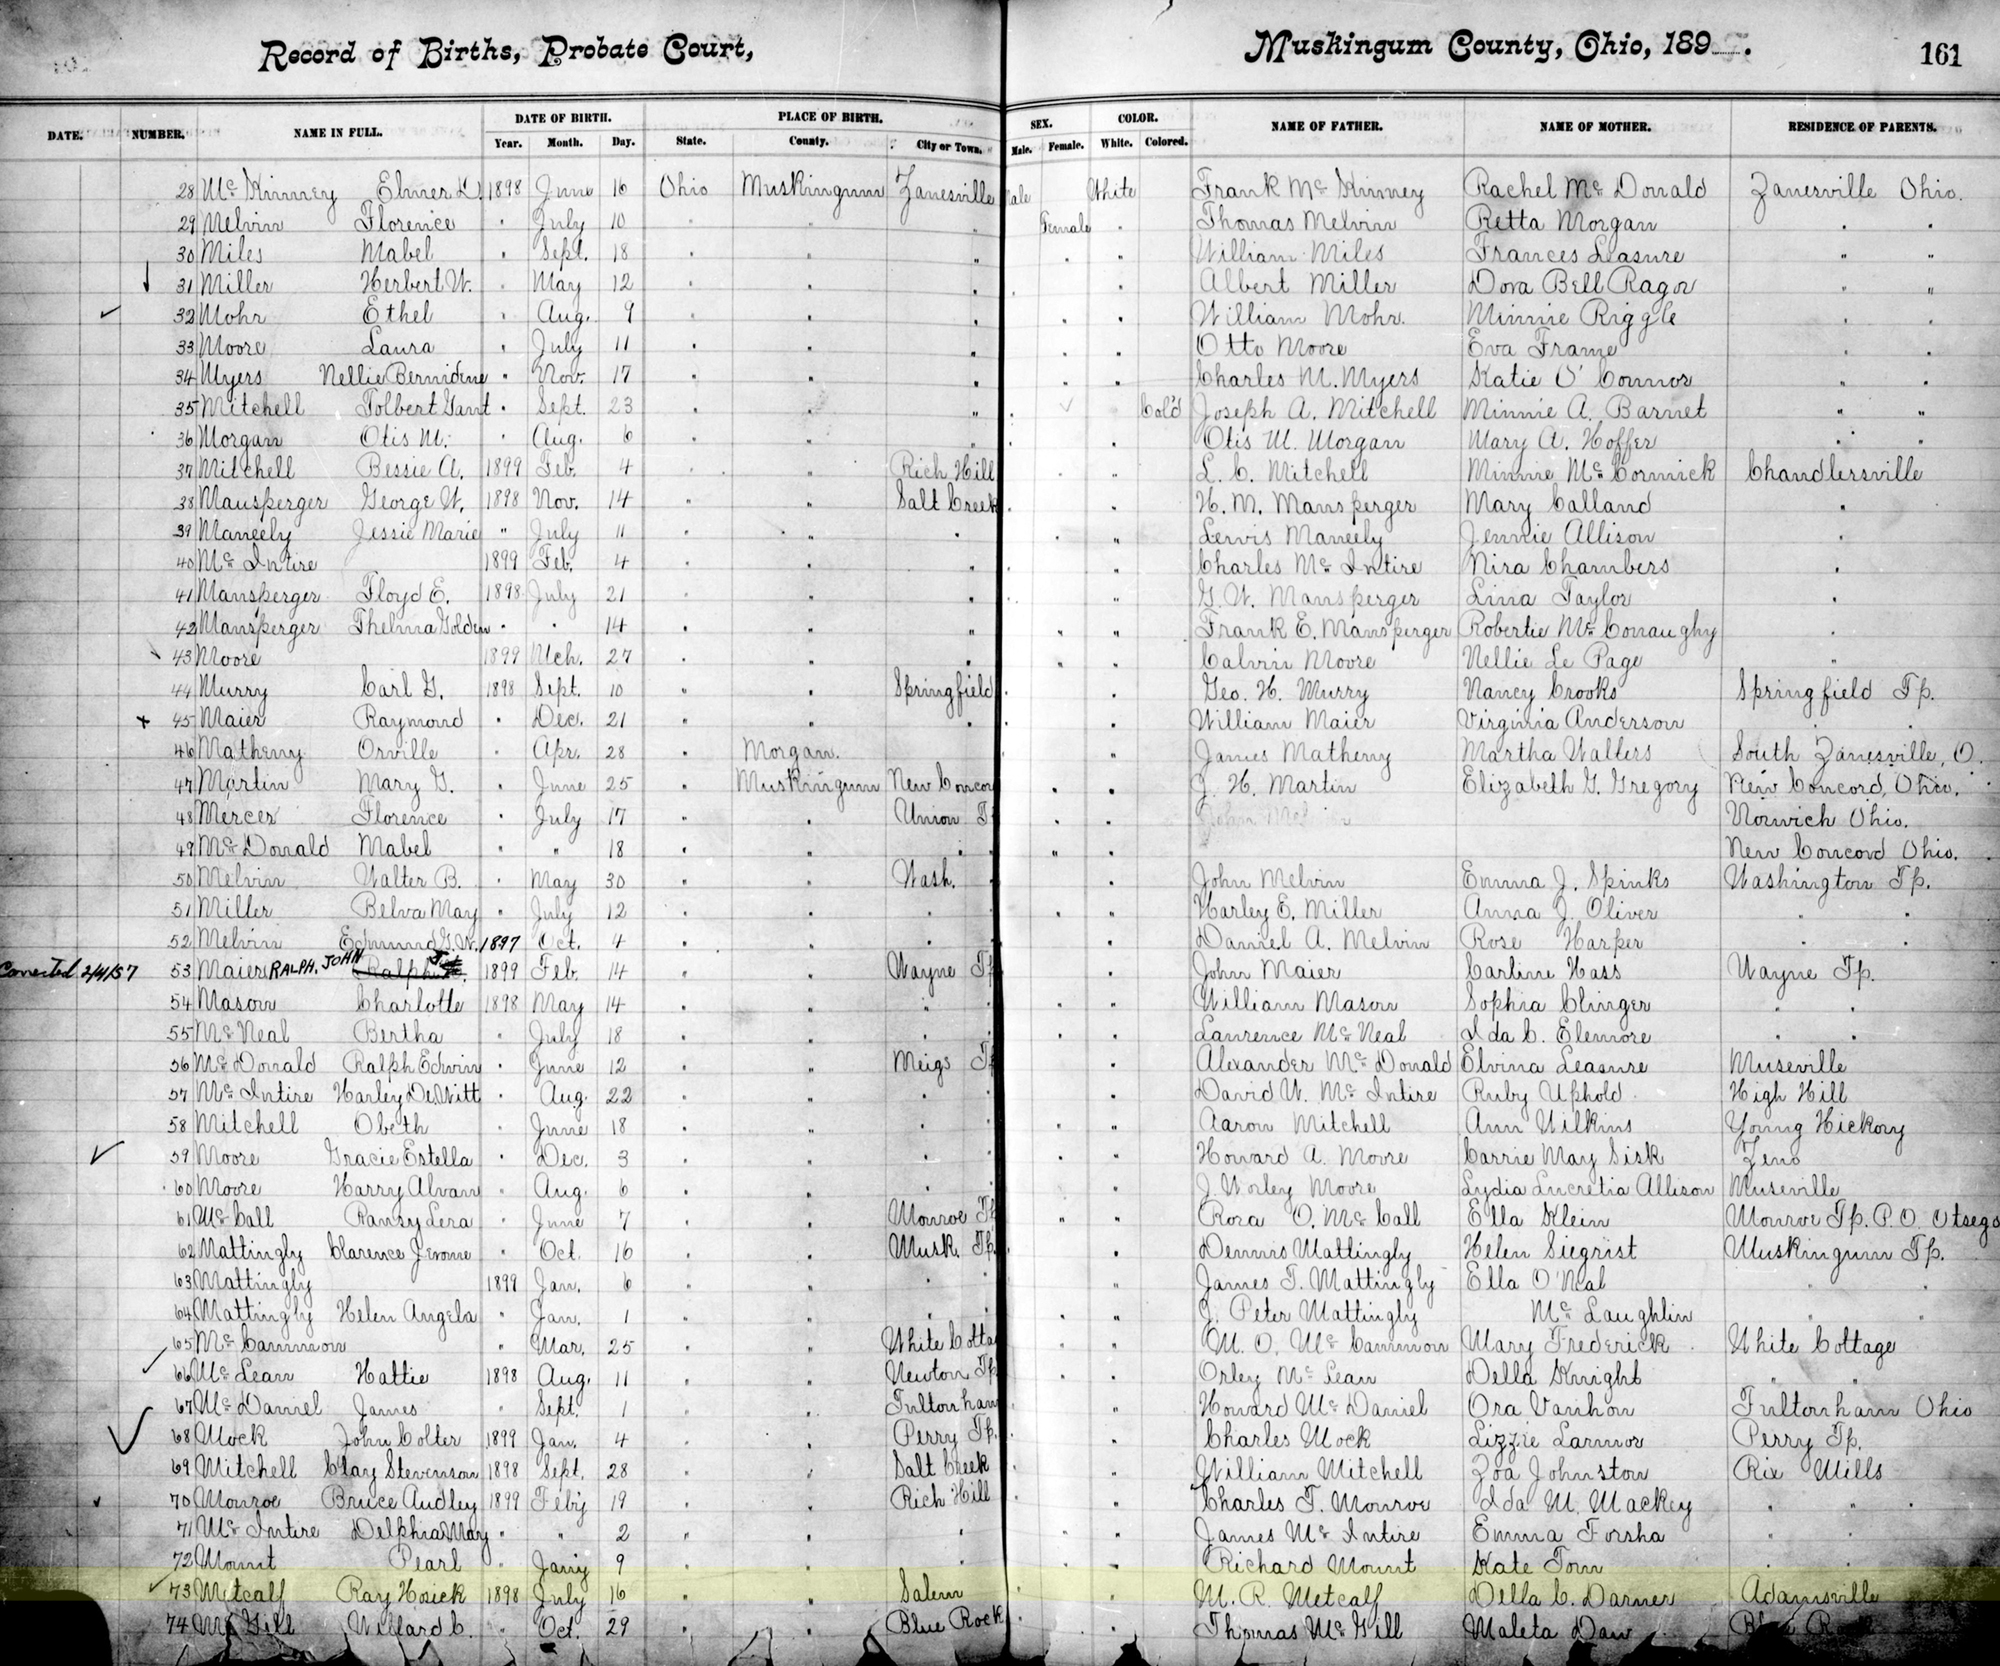 Record of Births, Probate Court, Muskingum County, Ohio, 189 . 161
DATE. NUMBER. NAME IN FULL. DATE OF BIRTH. PLACE OF BIRTH. SEX. COLOR. NAME OF FATHER. NAME OF MOTHER. RESIDENCE OF PARENTS.
Year. Month. Day. State. County. City or Town. Male. Female. White. Colored.
28 Mc Kinney Elmer D. 1898 June 16 Ohio Muskingum Zanesville Male White Frank Mc Kinney Rachel Mc Donald Zanesville Ohio.
29 Melvin Florence " July 10 " " " Female " Thomas Melvin Retta Morgan " "
30 Miles Mabel " Sept. 18 " " " " " William Miles Frances Leasure " "
31 Miller Herbert W. " May 12 " " " " " Albert Miller Dora Bell Ragor " "
32 Mohr Ethel " Aug. 9 " " " " " William Mohr. Minnie Riggle " "
33 Moore Laura " July 11 " " " " " Otto Moore Eva Frame " "
34 Myers Nellie Bernidine " Nov. 17 " " " " " Charles M. Myers Katie O' Connor " "
35 Mitchell Tolbert Gant " Sept. 23 " " " " Col'd Joseph A. Mitchell Minnie A. Barnet " "
36 Morgan Otis M. " Aug. 6 " " " " " Otis M. Morgan Mary A. Hoffer " "
37 Mitchell Bessie A. 1899 Feb. 4 " " Rich Hill " " L. C. Mitchell Minnie Mc Cormick Chandlersville
38 Mansperger George W. 1898 Nov. 14 " " Salt Creek " " H. M. Mansperger Mary Calland "
39 Maneely Jessie Marie " July 11 " " " " " Lewis Maneely Jennie Allison "
40 Mc Intire 1899 Feb. 4 " " " " Charles Mc Intire Nira Chambers "
41 Mansperger Floyd E. 1898 July 21 " " " " " G. W. Mansperger Lina Taylor "
42 Mansperger Thelma Golden " " 14 " " " " " Frank E. Mansperger Robertie Mc Conaughy "
43 Moore 1899 Mch. 27 " " " " " Calvin Moore Nellie Le Page "
44 Murry Carl G. 1898 Sept. 10 " " Springfield " " Geo. H. Murry Nancy Crooks Springfield Tp.
45 Maier Raymond " Dec. 21 " " " " " William Maier Virginia Anderson " "
46 Matheny Orville " Apr. 28 " Morgan. " " James Matheny Martha Walters South Zanesville, O.
47 Martin Mary G. " June 25 " Muskingum New Concor " " J. H. Martin Elizabeth G. Gregory New Concord, Ohio.
48 Mercer Florence " July 17 " " Union T " " Norwich Ohio.
49 Mc Donald Mabel " " 18 " " " " " New Concord Ohio.
50 Melvin Walter B. " May 30 " " Wash. " " John Melvin Emma J. Spinks Washington Tp.
51 Miller Belva May " July 12 " " " " " Harley E. Miller Anna J. Oliver " "
52 Melvin Edmund G. W. 1897 Oct. 4 " " " " Daniel A. Melvin Rose Harper " "
Corrected 2/4/57 53 Maier RALPH, JOHN Ralph 1899 Feb. 14 " " Wayne Tp " John Maier Carline Hass Wayne Tp.
54 Mason Charlotte 1898 May 14 " " " " " William Mason Sophia Clinger " "
55 Mc Neal Bertha " July 18 " " " " " Laurence Mc Neal Ida C. Elemore " "
56 Mc Donald Ralph Edwin " June 12 " " Meigs T " Alexander Mc Donald Elvina Leasure Museville
57 Mc Intire Harley DeWitt " Aug. 22 " " " " David W. Mc Intire Ruby Uphold High Hill
58 Mitchell Obeth " June 18 " " " " " Aaron Mitchell Ann Wilkins Young Hickory
59 Moore Gracie Estella " Dec. 3 " " " " " Howard A. Moore Carrie May Sisk Zeno
60 Moore Harry Alvan " Aug. 6 " " " " J. Worley Moore Lydia Lucretia Allison Museville
61 Mc Call Pansy Lera " June 7 " " Monroe T " " Rora O. Mc Call Ella Klein Monroe Tp. P.O. Otsego
62 Mattingly Clarence Jerome " Oct. 16 " " Musk. Tp. " " Dennis Mattingly Helen Siegrist Muskingum Tp.
63 Mattingly 1899 Jan. 6 " " " " James T. Mattingly Ella O'Neal " "
64 Mattingly Helen Angela " Jan. 1 " " " " " J. Peter Mattingly Mc Laughlin " "
65 Mc Cammon " Mar. 25 " " White Cotta " " M. O. Mc Cammon Mary Frederick White Cottage
66 Mc Lean Hattie 1898 Aug. 11 " " Newton Tp " " Orley Mc Lean Della Knight " "
67 Mc Daniel James " Sept. 1 " " Fultonham " Howard Mc Daniel Ora Vanhon Fultonham Ohio
68 Mock John Colter 1899 Jan. 4 " " Perry Tp. " " Charles Mock Lizzie Larmor Perry Tp.
69 Mitchell Clay Stevenson 1898 Sept. 28 " " Salt Creek " " William Mitchell Zoa Johnston Rix Mills
70 Monroe Bruce Audley 1899 Feb'y 19 " " Rich Hill " " Charles T. Monroe Ida M. Mackey " "
71 Mc Intire Delphia May " " 2 " " " " " James Mc Intire Emma Forsha " "
72 Mount Pearl " Jan'y 9 " " " " " Richard Mount Kate Tom " "
73 Metcalf Ray Hosick 1898 July 16 " " Salem " " M. R. Metcalf Della C. Darner Adamsville
74 Mc Gill Willard C. " Oct. 29 " " Blue Rock " " Thomas Mc Gill Maleta Daw Blue Rock